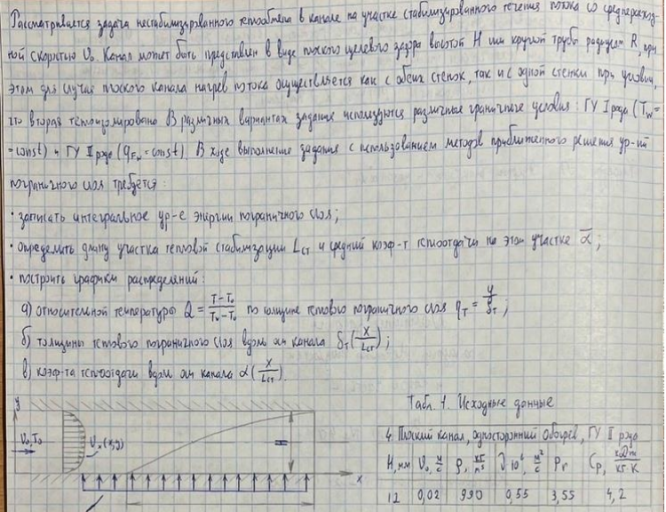 Рассматривается задача нестабилизированного теплообмена в канале на участке стабилизированного течения потока со среднерасход-
ной скоростью U₀. Канал может быть представлен в виде плоского щелевого зазора высотой H или круглой трубы радиусом R, при
этом для случая плоского канала нагрев потока осуществляется как с обеих стенок, так и с одной стенки при условии,
что вторая теплоизолирована. В различных вариантах задания используются различные граничные условия: ГУ I рода (T_w=
=const) и ГУ II рода (const). В ходе выполнения задания с использованием методов приближенного решения ур-ий
пограничного слоя требуется:
• записать интегральное ур-е энергии пограничного слоя;
• определить длину участка тепловой стабилизации L_ст и средний коэф-т теплоотдачи на этом участке ᾱ;
• построить графики распределений:
а) относительной температуры Q = (T-T₀)/(T_w-T₀) по толщине теплового пограничного слоя η_T = y/δ_T;
б) толщины теплового пограничного слоя вдоль оси канала δ_T(x/L_ст);
в) коэф-та теплоотдачи вдоль оси канала α(x/L_ст).
Табл. 1. Исходные данные
4. Плоский канал, односторонний обогрев, ГУ II рода
H, мм U₀, м/с ρ, кг/м³ ν·10⁶, м²/с Pr Cp, кДж/кг·К
12 0,02 990 0,55 3,55 4,2
y
U₀, T₀
(x,y)
H
x